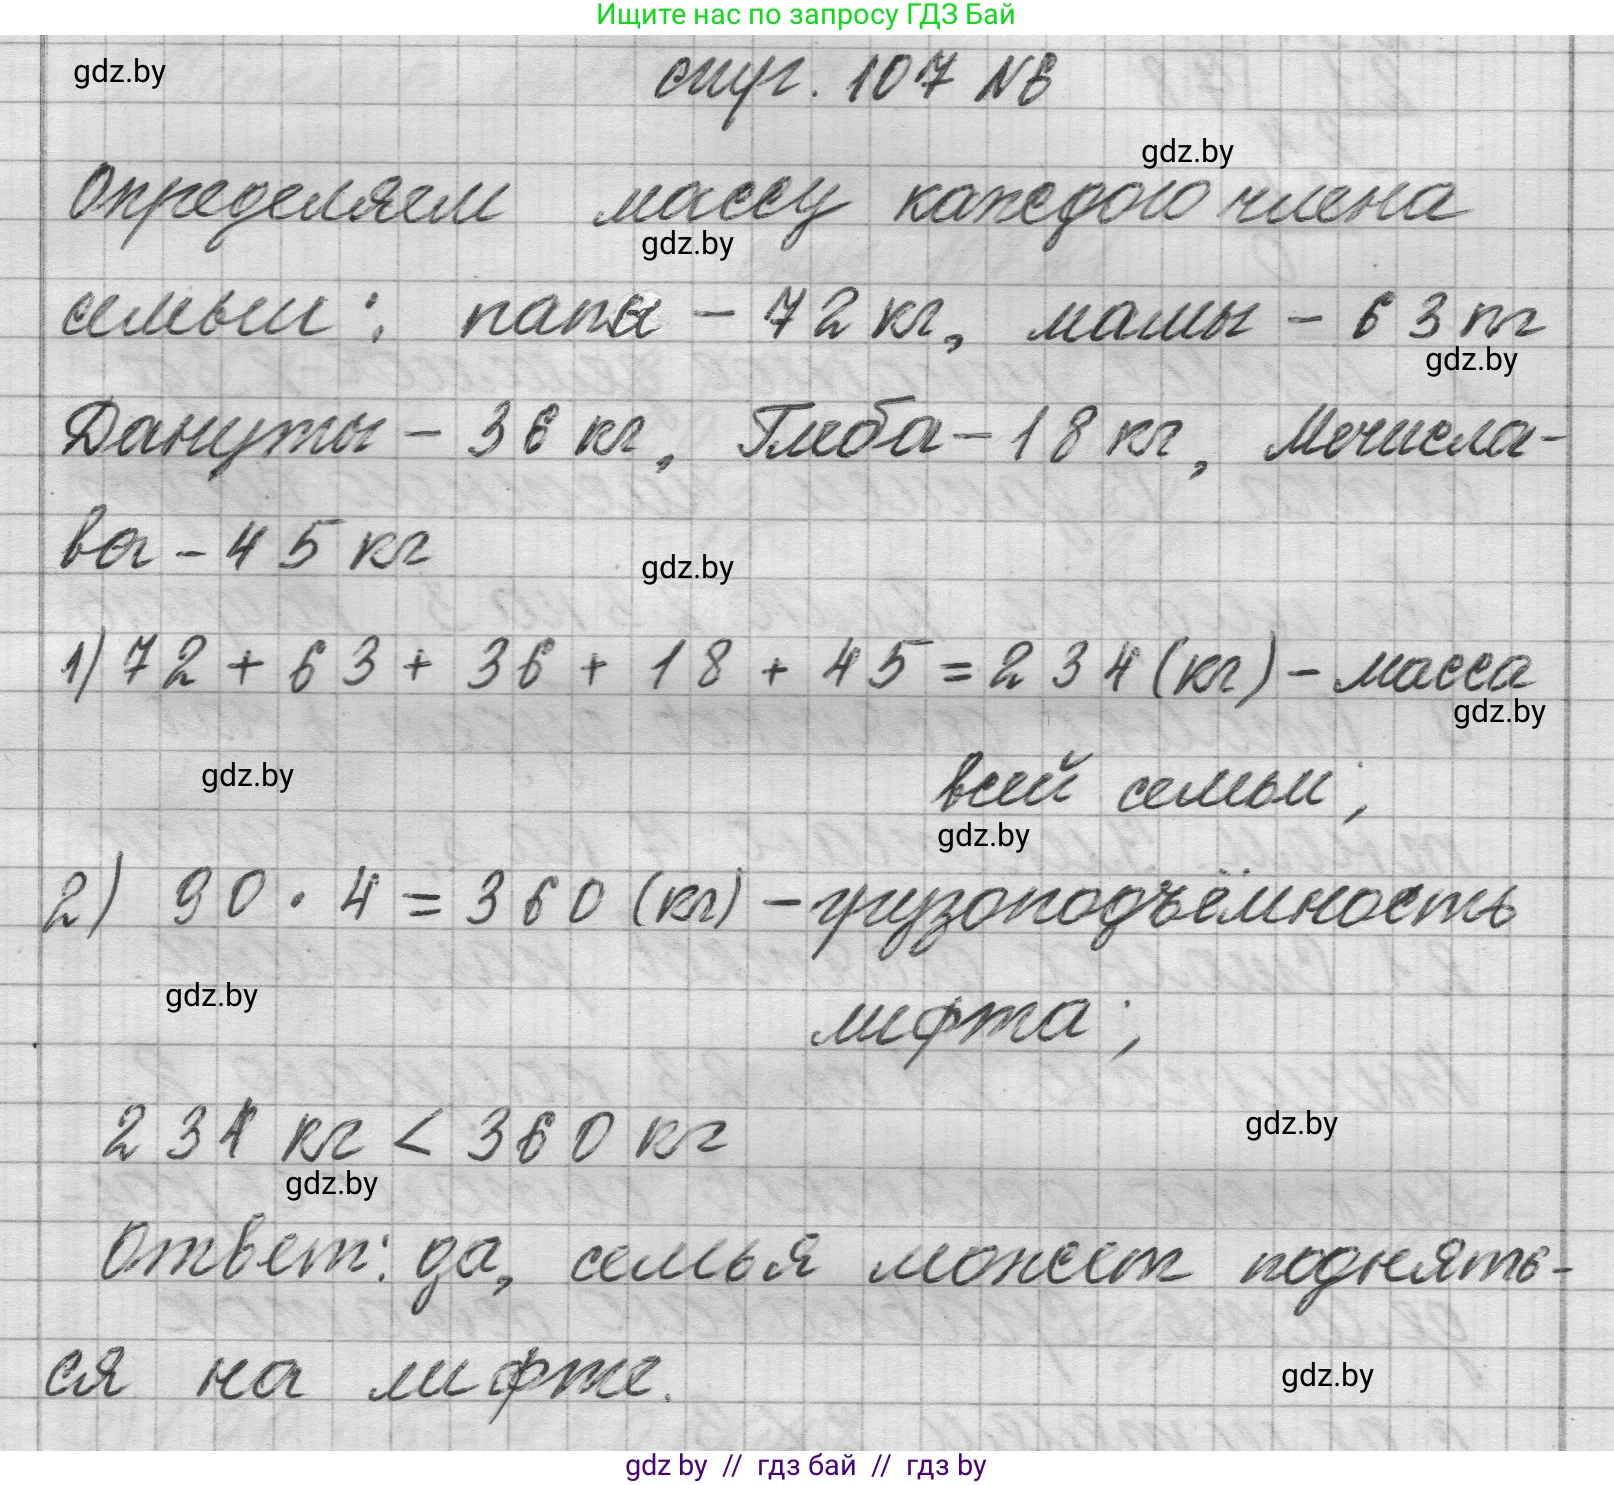 Ищите нас по запросу ГДЗ Бай
gdz.by
стр. 107 №6
gdz.by
Определяем массу каждого члена
gdz.by
семьи: папы – 72 кг, мамы – 63 кг
gdz.by
Дануты – 36 кг, Глеба – 18 кг, Мечисла-
ва – 45 кг
gdz.by
1) 72 + 63 + 36 + 18 + 45 = 234 (кг) – масса
gdz.by
gdz.by
всей семьи;
gdz.by
2) 90 · 4 = 360 (кг) – грузоподъёмность
gdz.by
лифта;
234 кг < 360 кг
gdz.by
gdz.by
Ответ: да, семья может поднять-
ся на лифте.
gdz.by
gdz by // гдз бай // гдз by